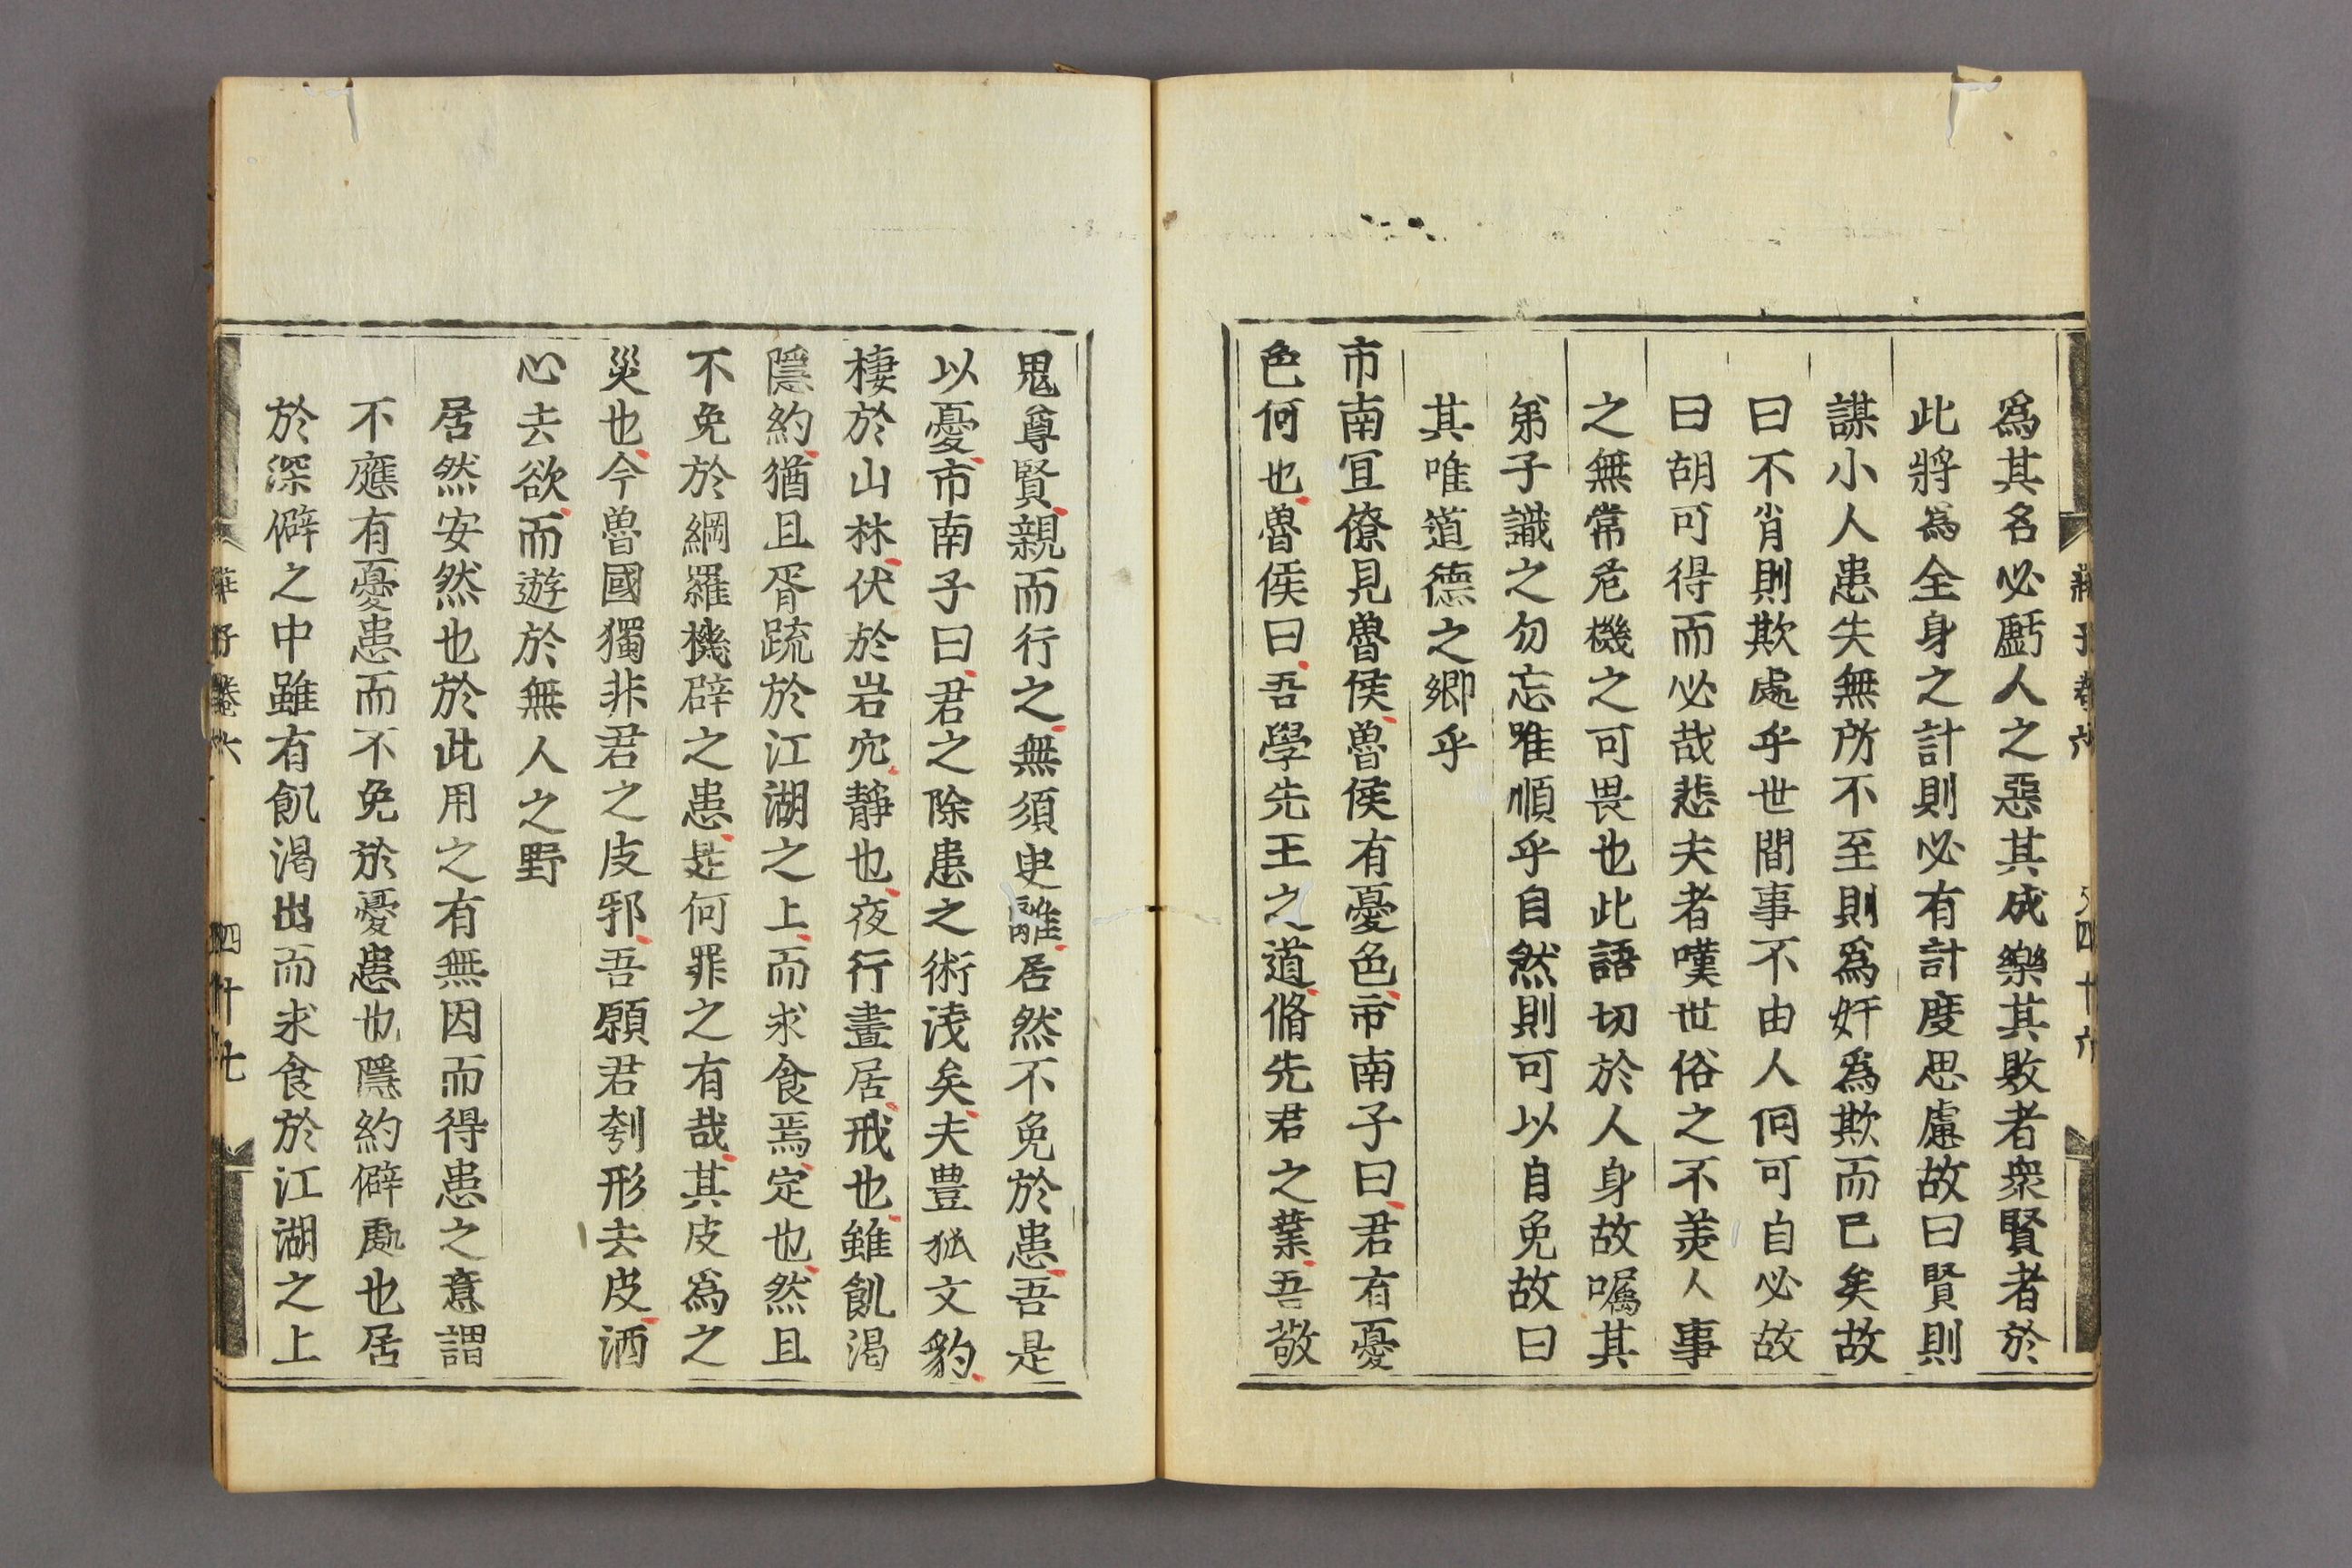 爲其名必虧人之惡其成樂其敗者衆賢者於
此將爲全身之計則必有計度思慮故曰賢則
謀小人患失無所不至則爲奸爲欺而已矣故
曰不肖則欺處乎世間事不由人何可自必故
曰胡可得而必哉悲夫者嘆世俗之不美人事
之無常危機之可畏也此語切於人身故囑其
弟子識之勿忘唯順乎自然則可以自免故曰
其唯道德之鄉乎
市南冝僚見魯侯魯侯有憂色市南子曰君有憂
色何也魯侯曰吾學先王之道脩先君之業吾敬
鬼尊賢親而行之無須臾離居然不免於患吾是
以憂市南子曰君之除患之術淺矣夫豊狐文豹
棲於山林伏於岩穴靜也夜行晝居戒也雖飢渴
隱約猶且胥疏於江湖之上而求食焉定也然且
不免於網羅機辟之患是何罪之有哉其皮爲之
災也今魯國獨非君之皮邪吾願君刳形去皮洒
心去欲而遊於無人之野
居然安然也於此用之有無因而得患之意謂
不應有憂患而不免於憂患也隱約僻處也居
於深僻之中雖有飢渴出而求食於江湖之上
莊子卷六
四十六
莊子卷六
四十七